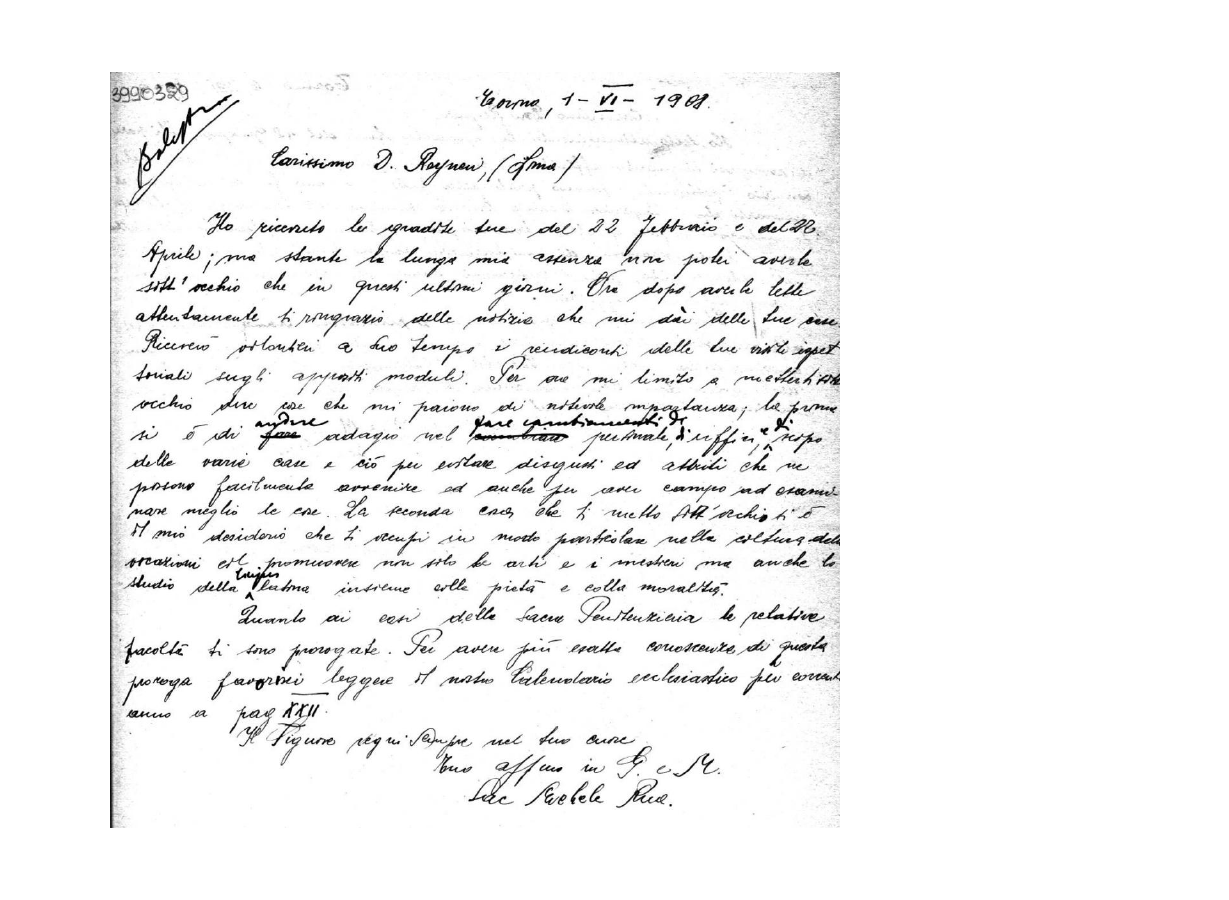 3990329
Torino, 1 - VI - 1908.
Carissimo D. Reyneri, (Lima)
Ho ricevuto le gradite tue del 22 Febbraio e del 22
Aprile; ma stante la lunga mia assenza non potei averle
sott'occhio che in questi ultimi giorni. Ora dopo averle lette
attentamente ti ringrazio delle notizie che mi dài delle tue case.
Riceverò volontieri a suo tempo i rendiconti delle tue visite ispet
toriali sugli appositi moduli. Per ora mi limito a metterti sott
occhio due cose che mi paiono di notevole importanza; la prima
si è di andare adagio nel fare cambiamenti di personale, di uffici, e di scopo
delle varie case e ciò per evitare disgusti ed attriti che ne
possono facilmente avvenire ed anche per aver campo ad esami-
nare meglio le cose. La seconda cosa che ti metto sott'occhio si è
il mio desiderio che ti occupi in modo particolare nella coltura delle
vocazioni col promuovere non solo le arti e i mestieri ma anche lo
studio della lingua latina insieme colla pietà e colla moralità.
Quanto ai casi della Sacra Penitenzieria le relative
facoltà ti sono prorogate. Per avere più esatta conoscenza di questa
proroga favorisci leggere il nostro Calendario ecclesiastico pel corrente
anno a pag XXII.
Il Signore regni sempre nel tuo cuore
Tuo affmo in G. e M.
Sac Michele Rua.